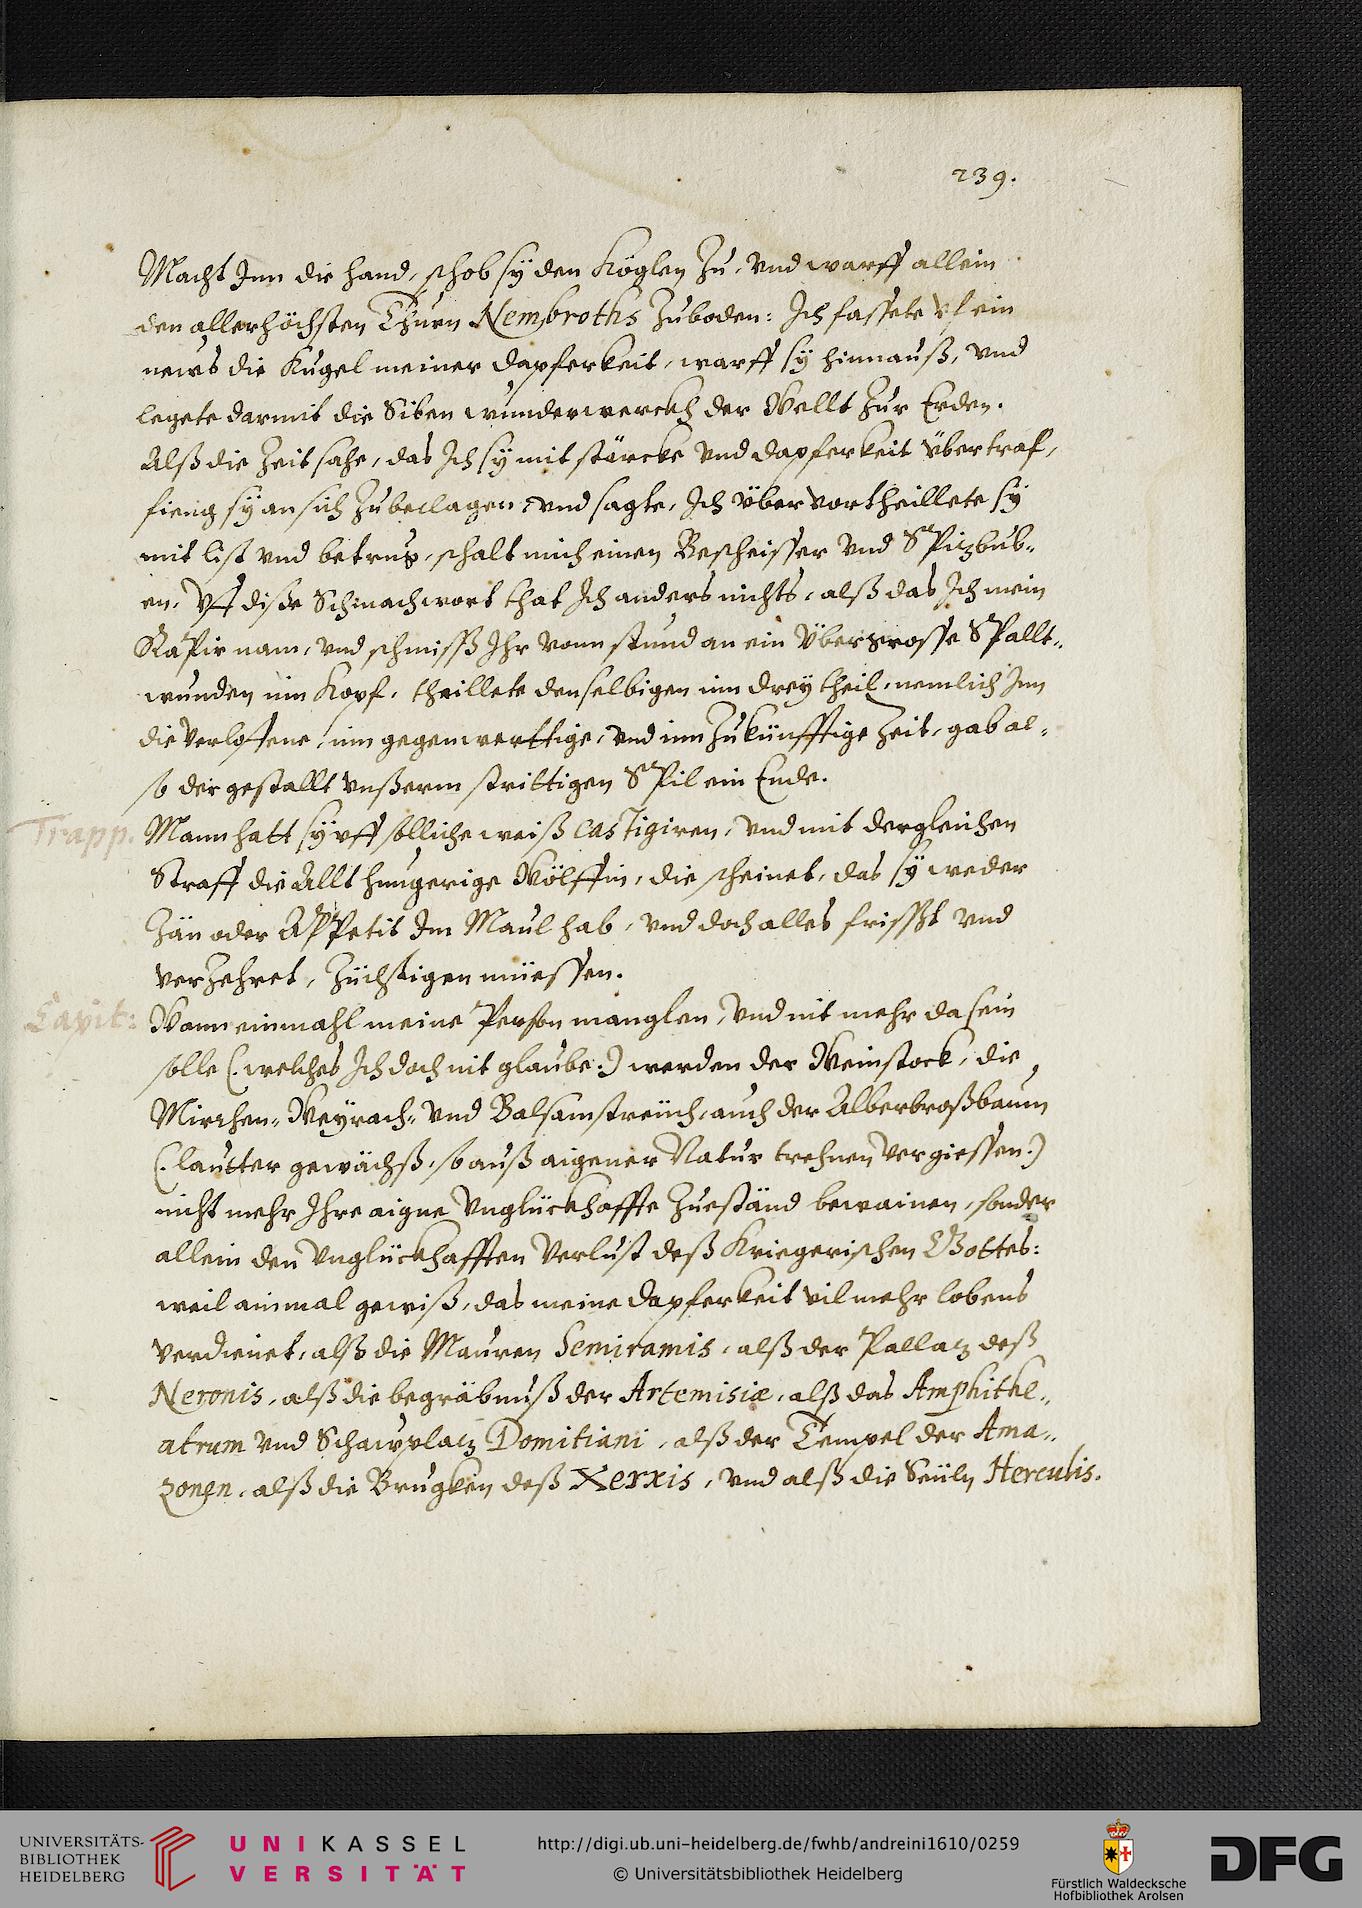 239.
Macht Inn die hand, schob sÿ den Köglen Zu, vnd warff allein
den allerhöchsten Thurn Nembroths Zuboden: Ich fassete vf ein
news die Kugel meiner dapferkeit, warff sÿ hinnauß, vnd
legete darmit die Siben wunderwerckh der Wellt Zur Erden.
Alß die Zeit sahe, das Ich sÿ mit stärcke vnd dapferkeit übertraf,
fieng sÿ an sich Zubeclagen, vnd sagte, Ich übervortheillete sÿ
mit list vnd betrug, schalt mich einen Bescheisser vnd SPizbub-
en. Vff diße Schmachwort that Ich anders nichts, alß das Ich mein
RaPir nam, vnd schmiss Ihr vonn stund an ein übergrosse SPallt-
wunden inn Kopf, theillete denselbigen inn dreÿ theil, nemlich Inn
die verloffene, inn gegenwerttige, vnd inn Zukünfftige Zeit, gab al-
so der gestallt vnßerm strittigen SPil ein Ende.
Trapp. Mann hatt sÿ vff solliche weiß castigiren, vnd mit dergleichen
Straff die Allt hungerige Wölffin, die scheinet, das sÿ weder
Zän oder APPetit Im Maul hab, vnd doch alles frisst vnd
verZehret, Züchtigen müessen.
Capit: Wann einmahl meine Person manglen, vnd nit mehr da sein
solle (: welches Ich doch nit glaube :) werden der Weinstock, die
Mirrhen- Weÿrach- vnd Balsamstreüch, auch der Alberbroßbaum
(: lautter gewächß, so auß aigener Natur trehnen vergiessen :)
nicht mehr Ihre aigne vnglückhaffte Zueständ bewainen, sonder
allein den vnglückhafften Verlust deß Kriegerischen Gottes:
weil ainmal gewiß, das meine dapferkeit vil mehr lobens
verdienet, alß die Mauren Semiramis, alß der Pallaz deß
Neronis, alß die begräbnuß der Artemisiæ, alß das Amphithe-
atrum vnd Schawplaz Domitiani, alß der Tempel der Ama-
zonen, alß die Brugken deß Xerxis, vnd alß die Seüln Herculis.
UNIVERSITÄTS-
BIBLIOTHEK
HEIDELBERG
UNIKASSEL
VERSITÄT
http://digi.ub.uni-heidelberg.de/fwhb/andreini1610/0259
© Universitätsbibliothek Heidelberg
Fürstlich Waldecksche
Hofbibliothek Arolsen
DFG